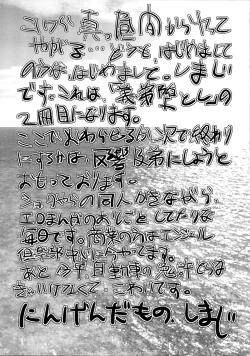 こいつら真っ昼間からやって
やがる…どうも、はじめまして
の方は、はじめまして。しまじ
です。これは、「義弟�としの
2冊目になります。
ここでおわらせるか次で終わり
にするかは、反響次第にしようと
おもっております。
の同人かきながら、
エロまんがのおしごとしてたりな
毎日です。商業の方はエンジェル
倶楽部さんでやってます。
あと今年自動車の免許とらな
きゃいけなくて、こわいです。
にんげんだもの、しまじ